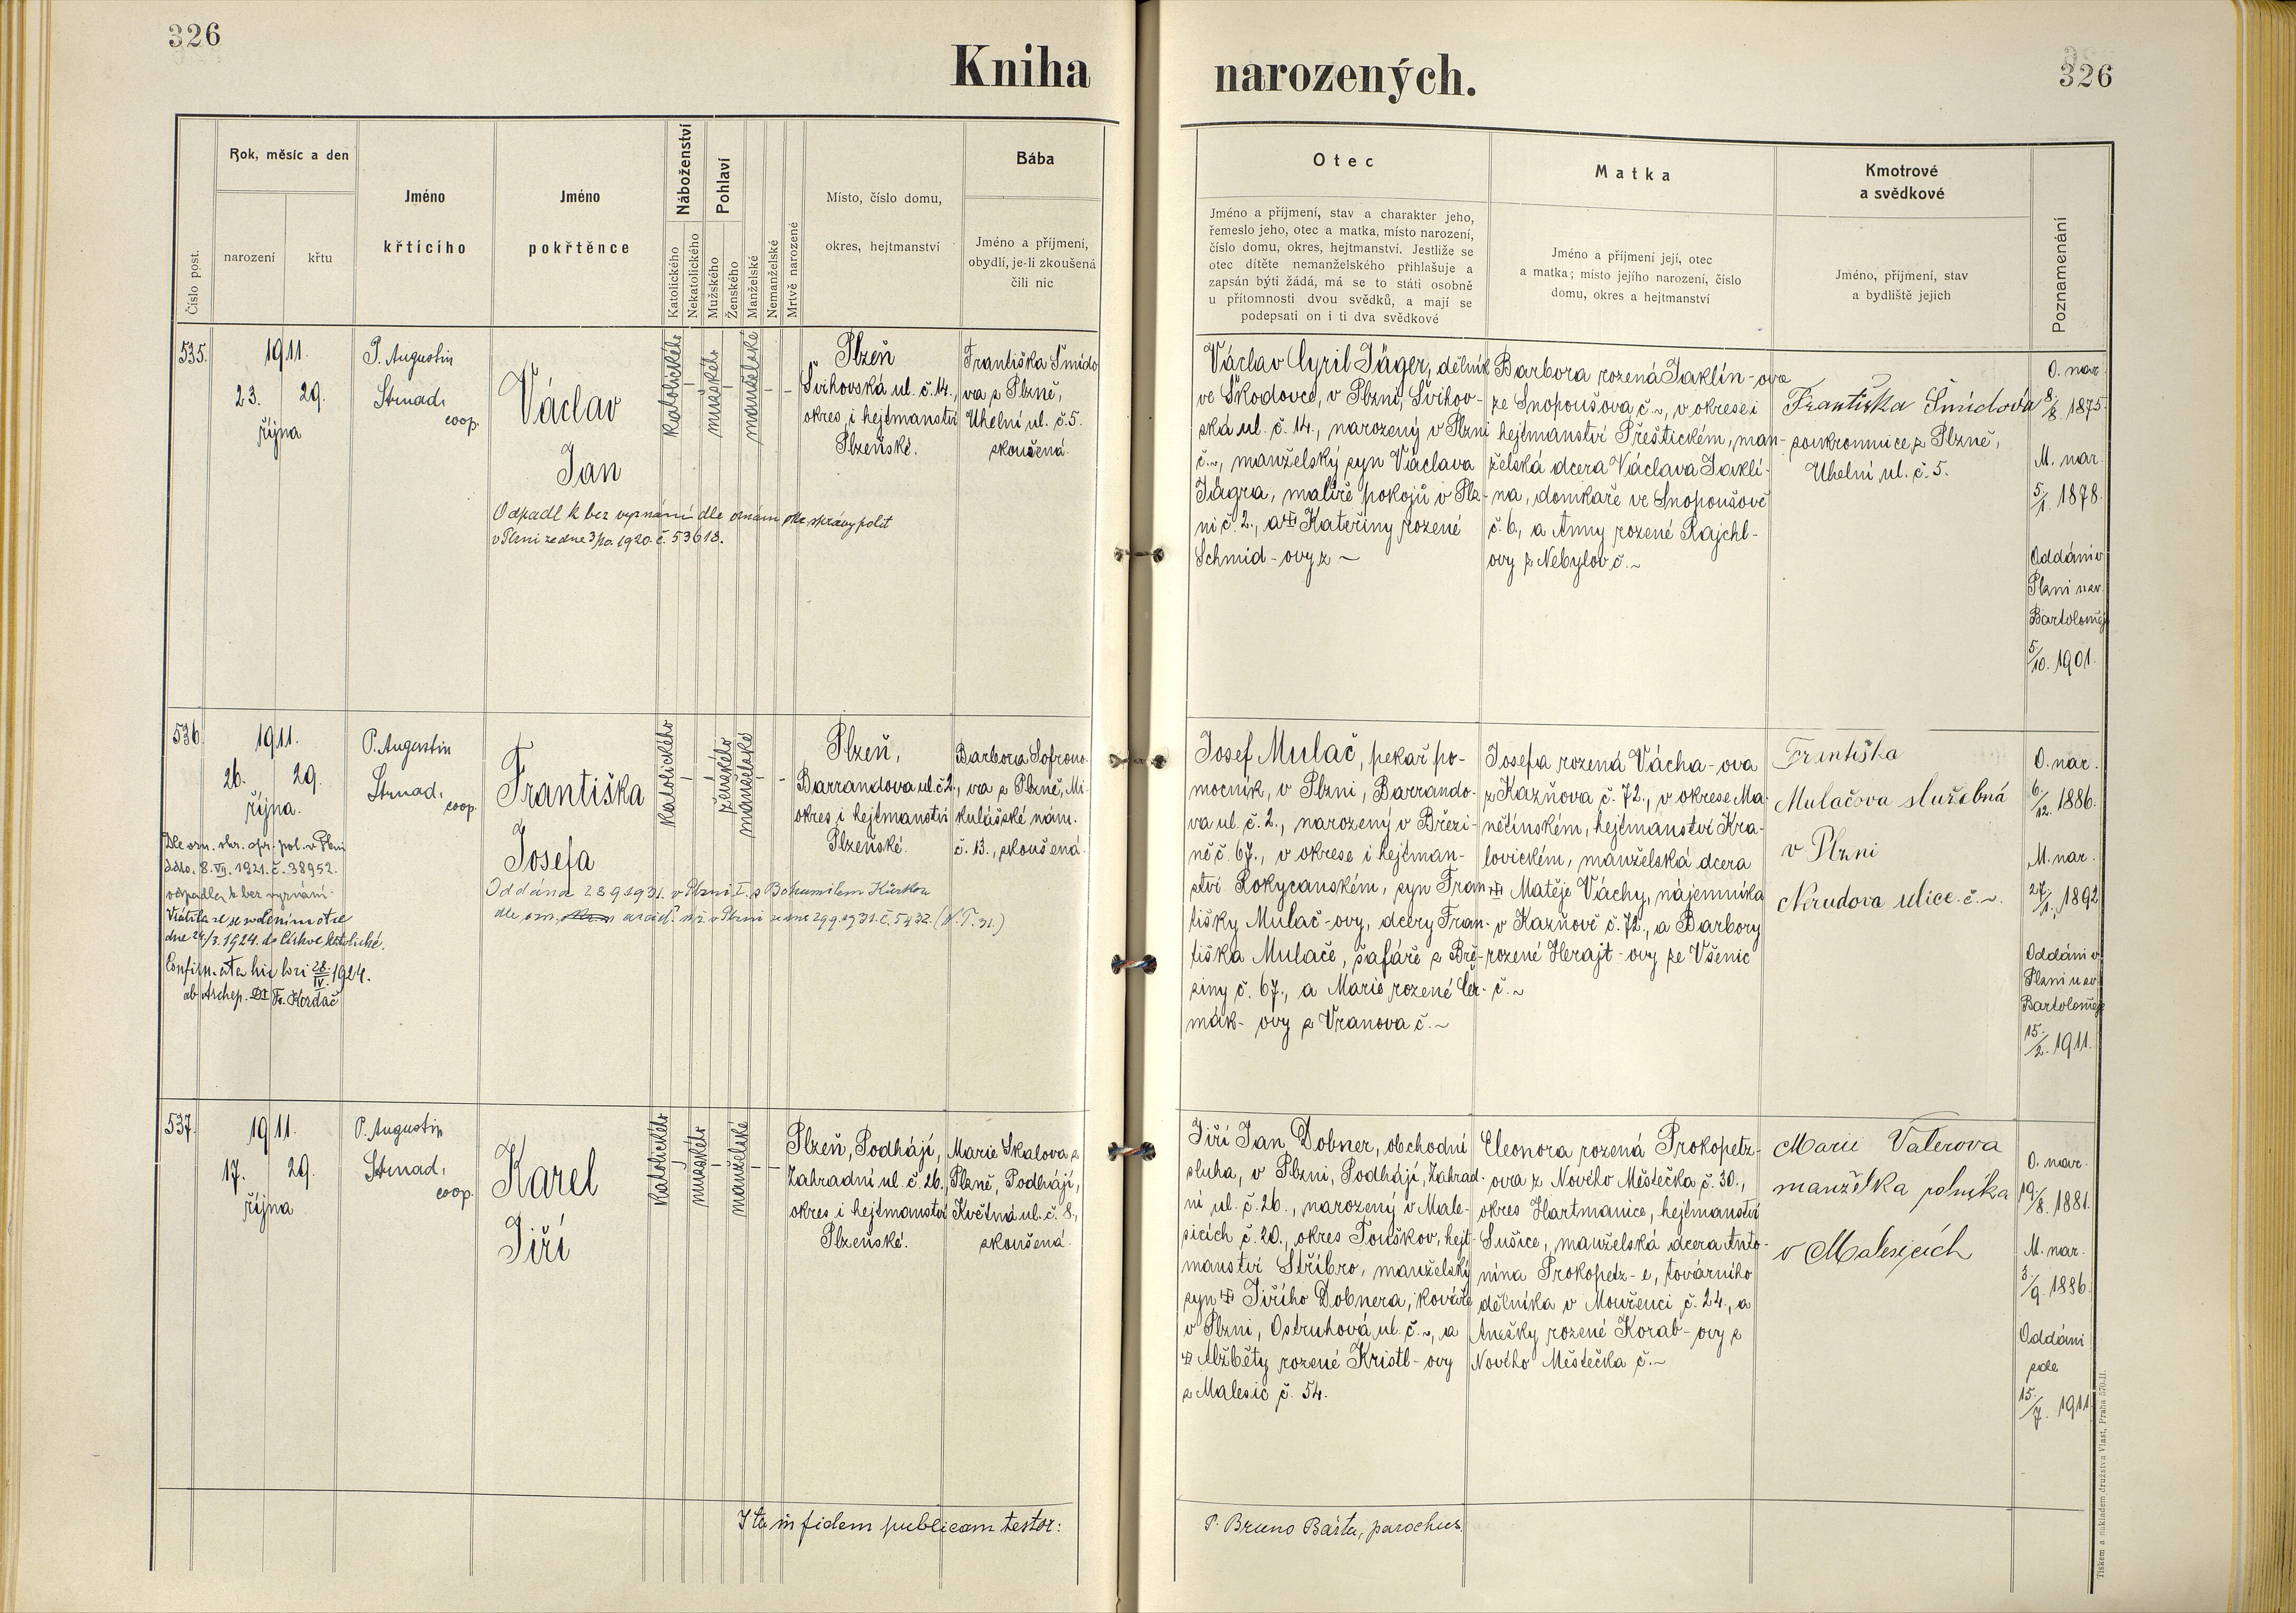 326
Kniha narozených.
326
Číslo post.
Rok, měsíc a den
narození
křtu
Jméno
křtícího
Jméno
pokřtěnce
Náboženství
Katolického
Nekatolického
Pohlaví
Mužského
Ženského
Manželské
Nemanželské
Mrtvě narozené
Místo, číslo domu,
okres, hejtmanství
Bába
Jméno a příjmení,
obydlí, je-li zkoušená
čili nic
Otec
Jméno a příjmení, stav a charakter jeho,
řemeslo jeho, otec a matka, místo narození,
číslo domu, okres, hejtmanství. Jestliže se
otec dítěte nemanželského přihlašuje a
zapsán býti žádá, má se to státi osobně
u přítomnosti dvou svědků, a mají se
podepsati on i ti dva svědkové
Matka
Jméno a příjmení její, otec
a matka; místo jejího narození, číslo
domu, okres a hejtmanství
Kmotrové
a svědkové
Jméno, příjmení, stav
a bydliště jejich
Poznamenání
535.
1911.
23. 29.
října
P. Augustin
Strnad,
coop.
Václav
Jan
Odpadl k bez vyznání dle oznám. správy polit
v Plzni ze dne 3/20. 1920. č. 53618.
katolického
mužského
manželské
Plzeň
Švihovská ul. č. 14.,
okres i hejtmanství
Plzeňské.
Františka Šmído
va z Plzně,
Uhelní ul. č. 5.
zkoušená.
Václav Cyril Jäger, dělník
ve Škodovce, v Plzni, Švihov-
ská ul. č. 14., narozený v Plzni
č. ~, manželský syn Václava
Jägra, malíře pokojů v Plz-
ni č. 2., a Kateřiny rozené
Schmid-ovy z ~
Barbora rozená Jaklín-ova
ze Snopoušova č. ~, v okrese i
hejtmanství Přeštickém, man-
želská dcera Václava Jaklí-
na, domkaře ve Snopoušově
č. 6, a Anny rozené Rajchl-
ovy z Nebylov č. ~
Františka Šmídová
soukromnice z Plzně,
Uhelní ul. č. 5.
O. nar.
8/8. 1875.
M. nar.
5/1. 1878.
Oddáni v
Plzni u sv.
Bartoloměje
5/10. 1901.
536.
1911.
26. 29.
října.
Dle ozn. okr. spr. pol. v Plzni
ddto. 8. VII. 1921. č. 38952.
odpadla k bez vyznání.
Vrátila se se svolením otce
dne 24/3. 1924. do Církve katolické.
Confirmata hic loci 28./IV. 1924.
ab Archep. Fr. Kordač
P. Augustin
Strnad,
coop.
Františka
Josefa
Oddána 28 9 1931. v Plzni I. s Bohumilem
dle ozn. v Plzni ze dne 29.9.1931. č. 5432. (N. T. 31.)
katolického
ženského
manželské
Plzeň,
Barrandova ul. č. 2.,
okres i hejtmanství
Plzeňské.
Barbora Sofrono-
va z Plzně, Mi-
kulášské nám.
č. 13., zkoušená.
Josef Mulač, pekař po-
mocník, v Plzni, Barrando-
va ul. č. 2., narozený v Březi-
ně č. 67., v okrese i hejtman-
ství Rokycanském, syn Fran-
tišky Mulač-ovy, dcery Fran-
tiška Mulače, šafáře z Bře-
ziny č. 67., a Marie rozené Čer-
mák-ovy z Vranova č. ~
Josefa rozená Vácha-ova
z Kazňova č. 72., v okrese Ma-
nětínském, hejtmanství Kra-
lovickém, manželská dcera
Matěje Váchy, nájemníka
v Kazňově č. 72., a Barbory
rozené Herajt-ovy ze Všenic
č. ~
Františka
Mulačova služebná
v Plzni
Nerudova ulice č. ~.
O. nar.
6/12. 1886.
M. nar.
27/1. 1892
Oddáni v
Plzni u sv.
Bartoloměje
15/2. 1911.
537.
1911.
17. 29.
října
P. Augustin
Strnad,
coop.
Karel
Jiří
katolického
mužského
manželské
Plzeň, Podhájí,
Zahradní ul. č. 26.,
okres i hejtmanství
Plzeňské.
Marie Skalova z
Plzně, Podhájí,
Květná ul. č. 8.,
zkoušená.
Jiří Jan Dobner, obchodní
sluha, v Plzni, Podhájí, Zahrad-
ní ul. č. 26., narozený v Male-
sicích č. 20., okres Touškov, hejt-
manství Stříbro, manželský
syn Jiřího Dobnera, kováře
v Plzni, Ostruhová ul. č. ~, a
Alžběty rozené Kristl-ovy
z Malesic č. 54.
Eleonora rozená Prokopetz-
ova z Nového Městečka č. 30.,
okres Hartmanice, hejtmanství
Sušice, manželská dcera Anto-
nína Prokopetz-e, továrního
dělníka v Mouřenci č. 24., a
Anežky rozené Korab-ovy z
Nového Městečka č. ~
Marie Valerova
manželka rolníka
v Malesicích
O. nar.
19/8. 1881.
M. nar.
3/9. 1886.
Oddáni
zde
15/7. 1911.
Ita in fidem publicam testor:
P. Bruno Bárta, parochus.
Tiskem a nákladem družstva Vlast, Praha 570-II.